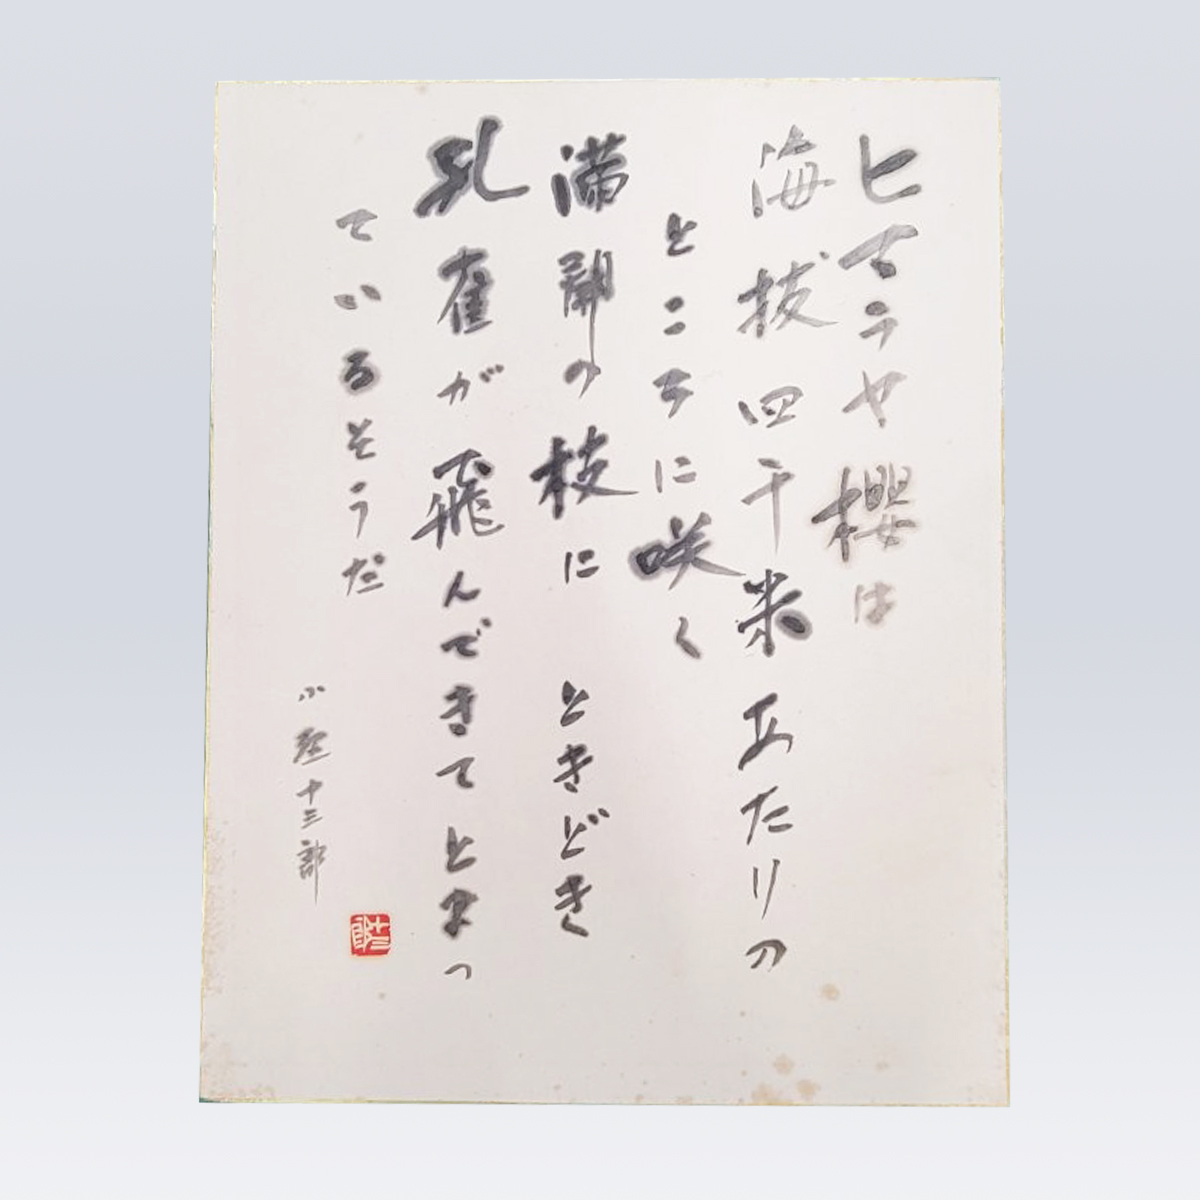 ヒマラヤ櫻は
海抜四千米あたりの
ところに咲く
満開の枝に ときどき
孔雀が飛んできてとまっ
ているそうだ
小野十三郎
十三郎